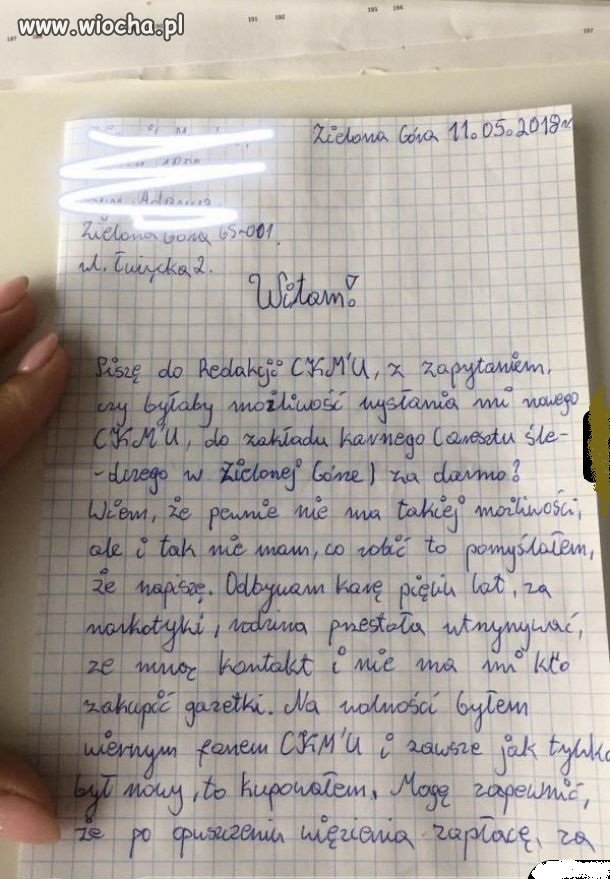 www.wiocha.pl
191 192
193 194
197
197
Zielona Góra 11.05.2018r.
Zielona Góra 65-001.
ul. Łużycka 2.
Witam!
Piszę do Redakcji CKM'U, z zapytaniem,
czy byłaby możliwość wysłania mi nowego
CKM'U, do zakładu karnego (aresztu śle-
-dczego w Zielonej Górze) za darmo?
Wiem, że pewnie nie ma takiej możliwości,
ale i tak nie mam, co robić to pomyślałem,
że napiszę. Odbywam karę pięciu lat, za
narkotyki, rodzina przestała utrzymywać,
ze mną kontakt i nie ma mi kto
zakupić gazetki. Na wolności byłem
wiernym fanem CKM'U i zawsze jak tylko
był nowy, to kupowałem. Mogę zapewnić,
że po opuszczeniu więzienia zapłacę, za